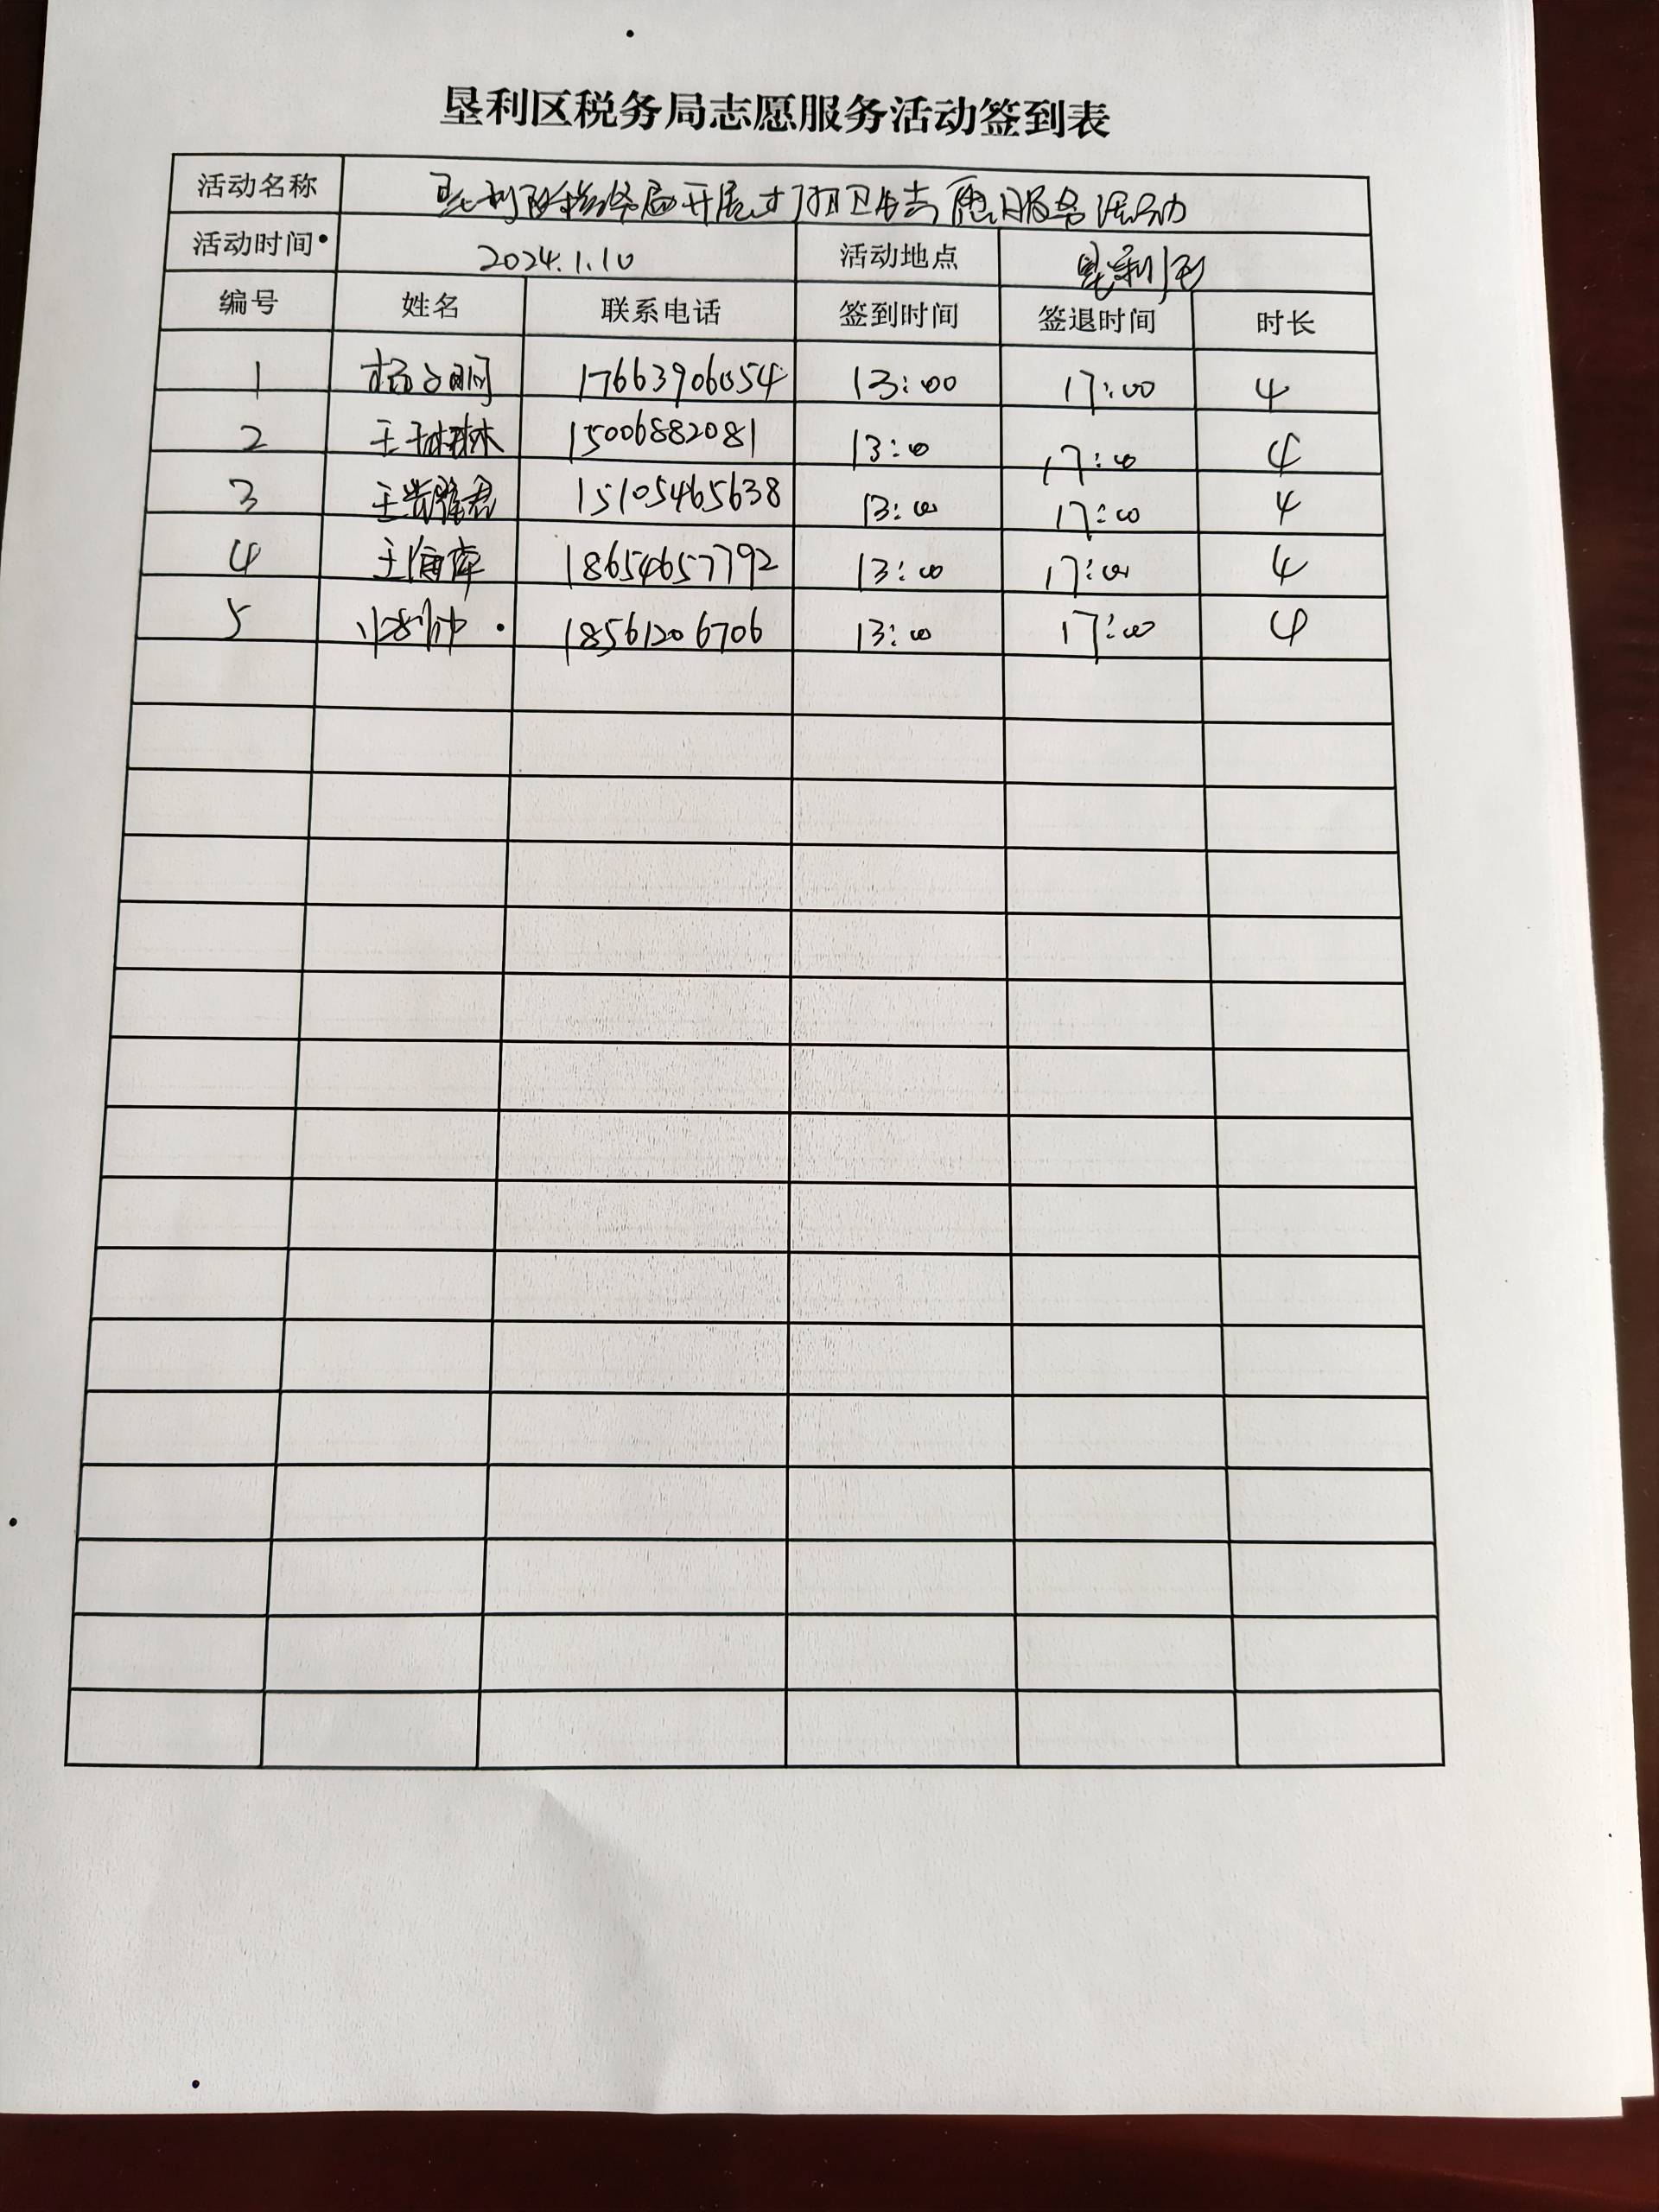 垦利区税务局志愿服务活动签到表
活动名称 垦利区税务局开展打扫卫生志愿服务活动
活动时间 2024.1.10 活动地点 垦利
编号 姓名 联系电话 签到时间 签退时间 时长
1 17663906054 13:00 17:00 4
2 王 15006882081 13:00 17:00 4
3 王 君 15105465638 13:00 17:00 4
4 王海 18654657792 13:00 17:00 4
5 18561206706 13:00 17:00 4